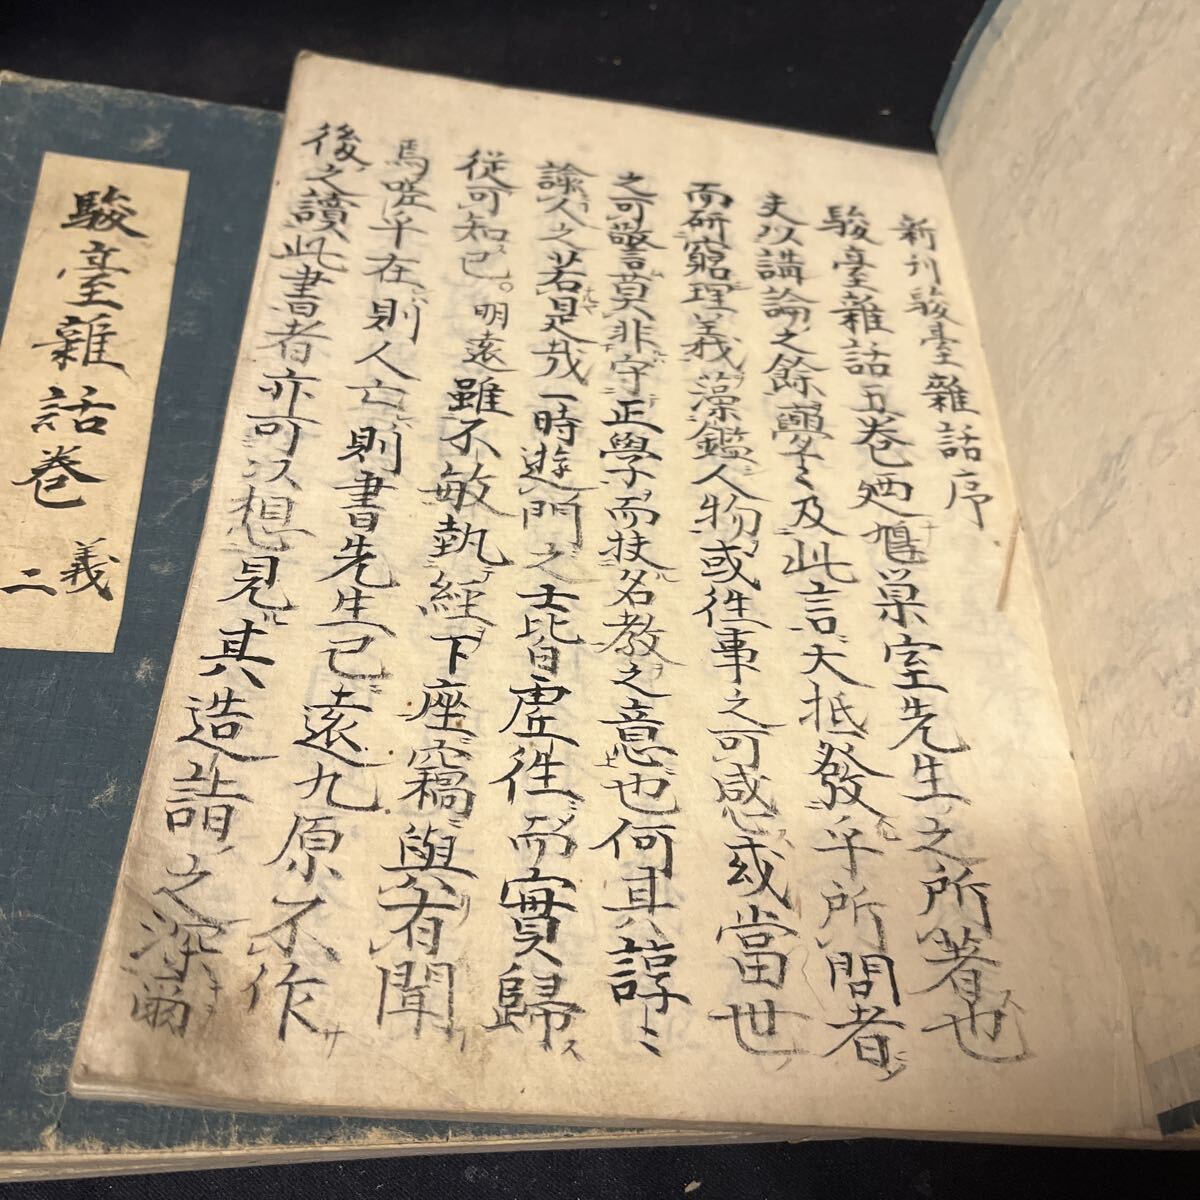 新刊駿臺雜話序
駿臺雜話五卷廼鳩巢室先生之所著也
夫以講論之餘興之及此言大抵發乎所問者
而研窮理義藻鑑人物或往事之可感或當世
之可警莫非守正學而扶名教之意也何其諄〻
諭人之若是哉一時遊門之士皆虛徃而實歸
從可知已。明遠雖不敏執經下座竊與有聞
焉嗟乎在則人亡則書先生已遠九原不作
後之讀此書者亦可以想見其造詣之深爾
駿臺雜話卷
義
二